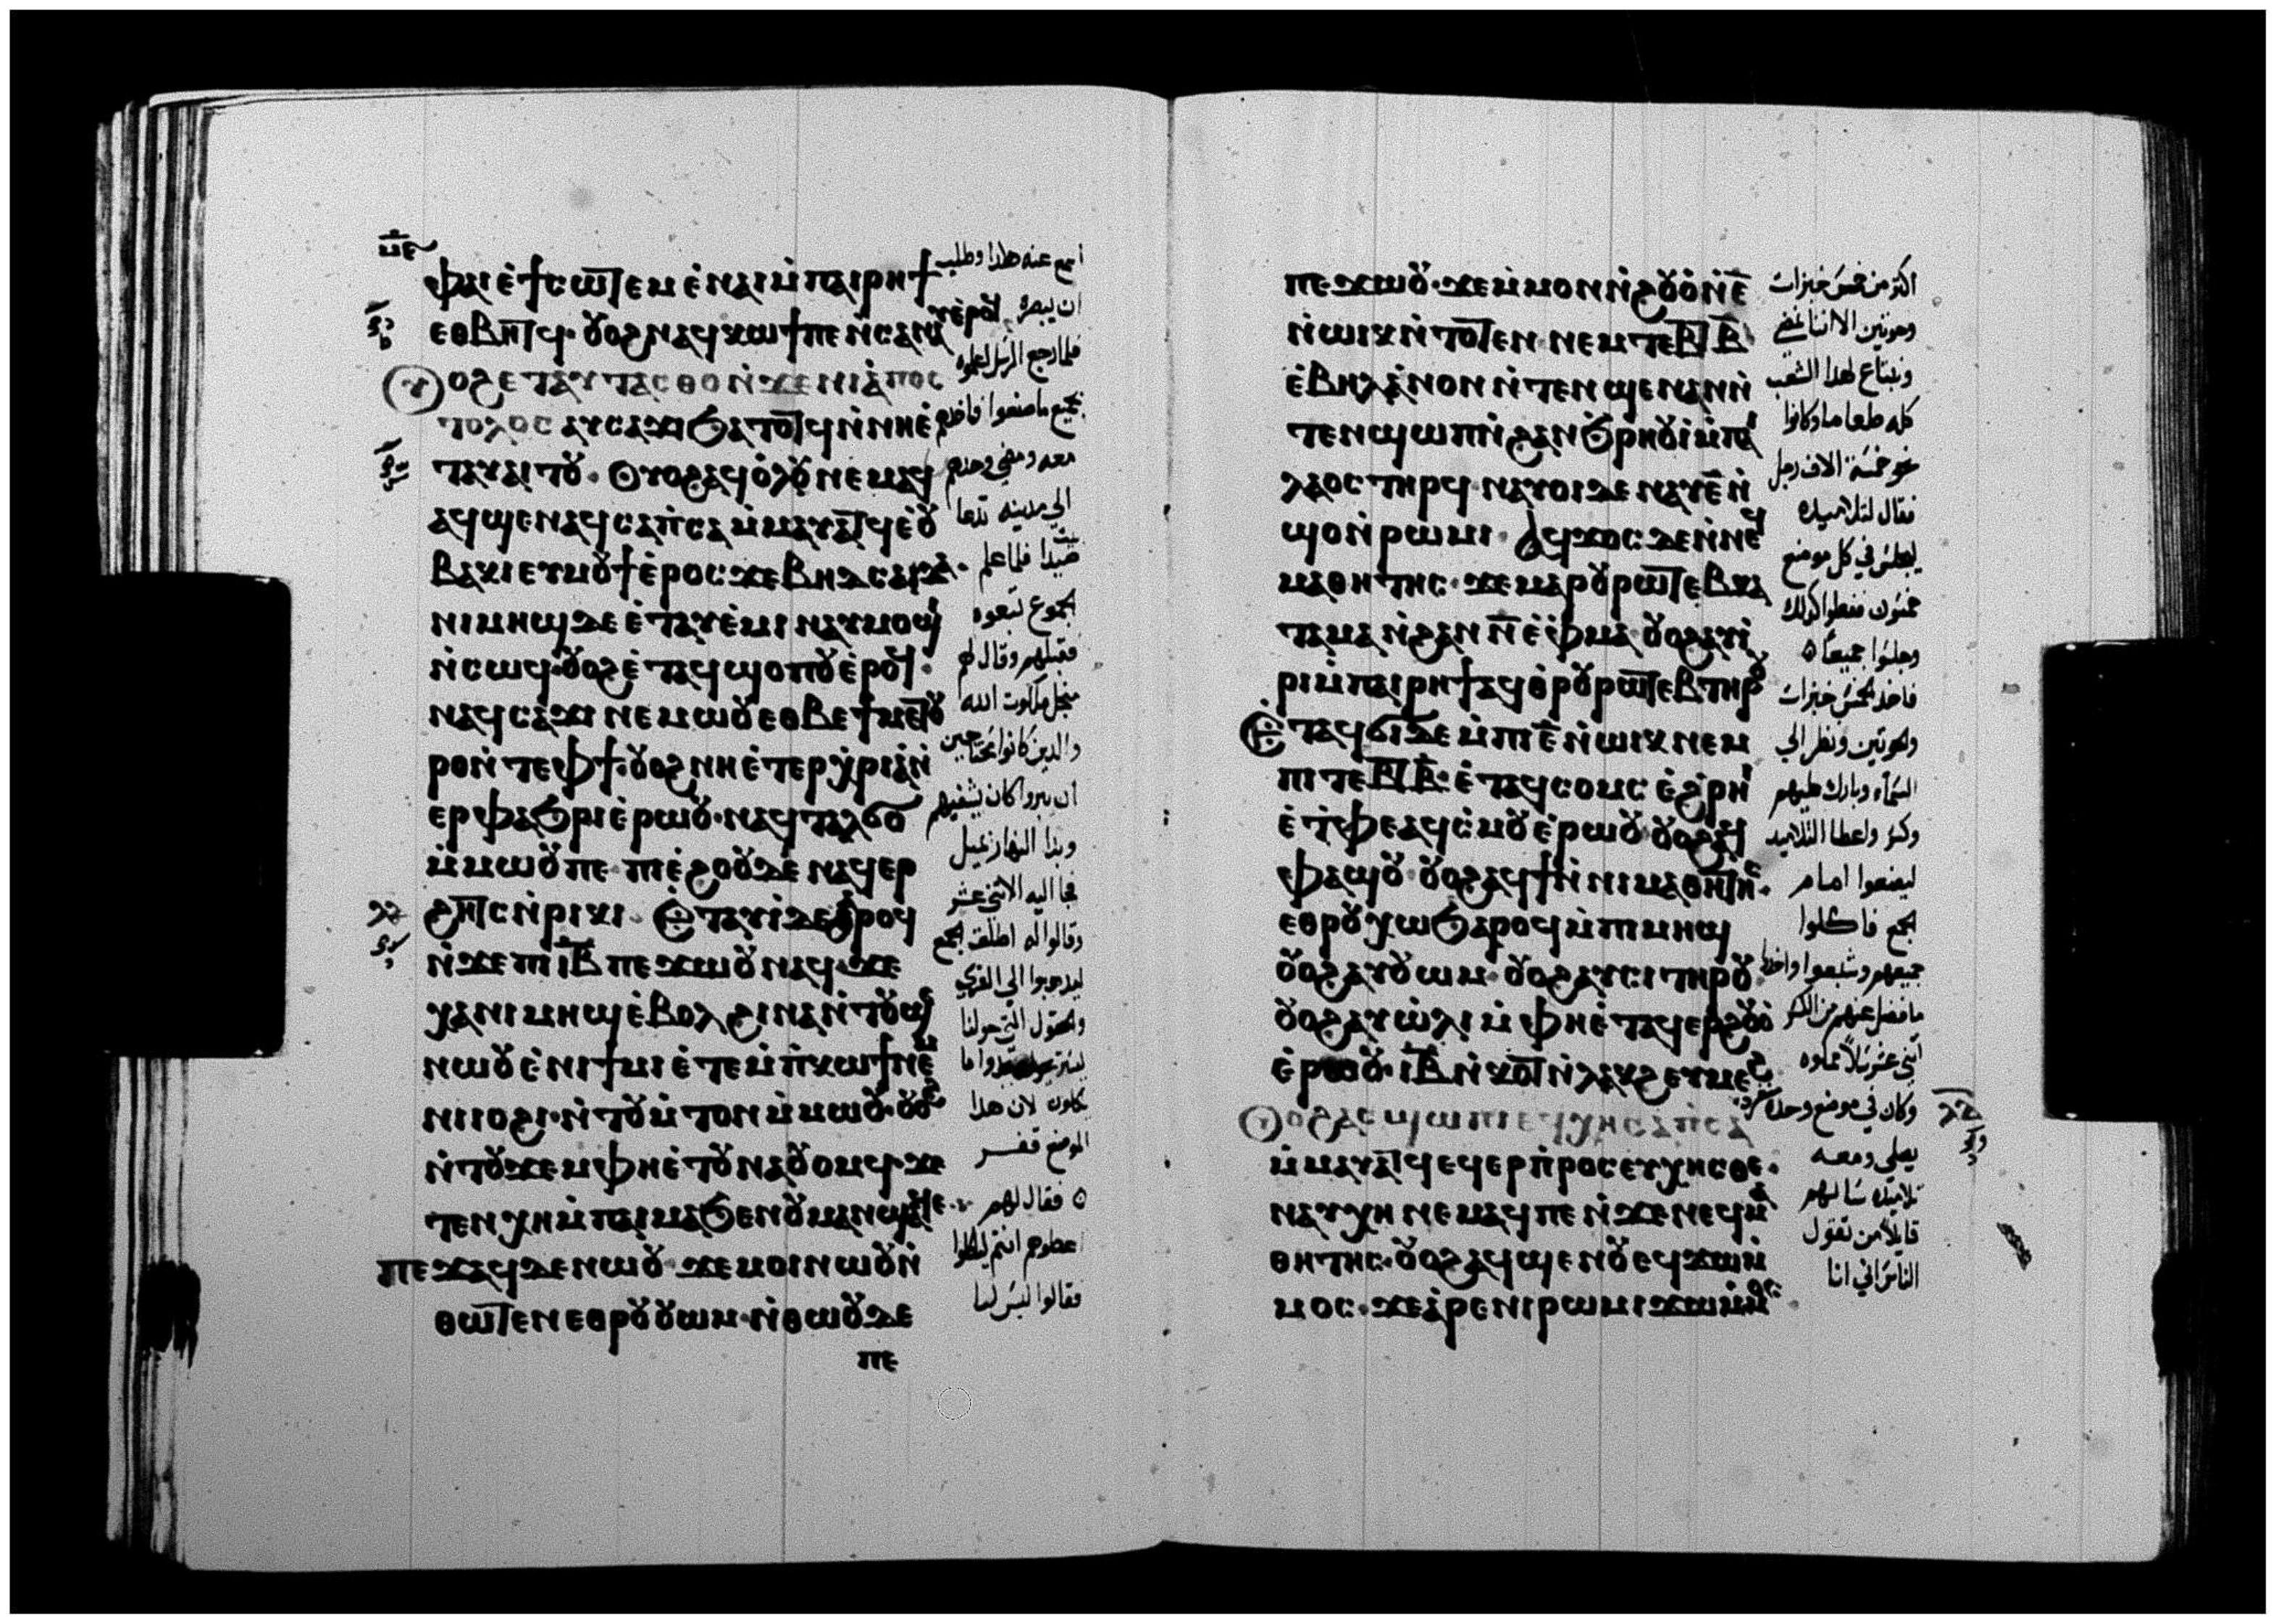 ⲙ̅ⲉ̅
ⲫⲁⲓ ⲉ̀ϯⲥⲱⲧⲉⲙ ⲉ̀ⲛⲁⲓ ⲙ̀ⲡⲁⲓⲣⲏϯ
ⲉⲑⲃⲏⲧϥ· ⲟⲩⲟϩ ⲛⲁϥⲕⲱϯ ⲡⲉ ⲛ̀ⲥⲁⲛⲁⲩ ⲉ̀ⲣⲟϥ
ⲟⲩⲟϩ ⲉⲧⲁⲩⲧⲁⲥⲑⲟ ⲛ̀ϫⲉ ⲛⲓⲁ̀ⲡⲟⲥ
ⲧⲟⲗⲟⲥ ⲁⲩⲥⲁϫⲓ ϧⲁⲧⲟⲧϥ ⲛ̀ⲛⲏⲉ̀
ⲧⲁⲩⲁⲓⲧⲟⲩ· ⲟⲩⲟϩ ⲁϥⲟ̀ⲗⲟⲩ ⲛⲉⲙⲁϥ
ⲁϥϣⲉⲛⲁϥ ⲥⲁⲡ̀ⲥⲁ ⲙ̀ⲙⲁⲩⲁⲧϥ ⲉ̀ⲟⲩ
ⲃⲁⲕⲓ ⲉⲩⲙⲟⲩϯ ⲉ̀ⲣⲟⲥ ϫⲉ ⲃⲏⲇⲥⲁⲓⲇⲁ·
ⲛⲓⲙⲏϣ ⲇⲉ ⲉ̀ⲧⲁⲩⲉ̀ⲙⲓ ⲛⲁⲩⲙⲟϣⲓ
ⲛ̀ⲥⲱϥ· ⲟⲩⲟϩ ⲉ̀ⲧⲁϥϣⲟⲡⲟⲩ ⲉ̀ⲣⲟϥ·
ⲛⲁϥⲥⲁϫⲓ ⲛⲉⲙⲱⲟⲩ ⲉⲑⲃⲉ ϯⲙⲉⲧⲟⲩ
ⲣⲟ ⲛ̀ⲧⲉ ⲫϯ· ⲟⲩⲟϩ ⲛⲏ ⲉ̀ⲧⲉⲣⲭ̀ⲣⲓⲁ̀ ⲛ̀
ⲉⲣⲫⲁϧⲣⲓ ⲉ̀ⲣⲱⲟⲩ· ⲛⲁϥⲧⲁⲗϭⲟ
ⲙ̀ⲙⲱⲟⲩ ⲡⲉ· ⲡⲓⲉ̀ϩⲟⲟⲩ ⲇⲉ ⲛⲁϥⲉⲣ
ϩⲏⲧⲥ ⲛ̀ⲣⲓⲕⲓ· ⲉⲧⲁⲩⲓ̀ ⲇⲉ ϩⲁⲣⲟϥ
ⲛ̀ϫⲉ ⲡⲓⲓ̅ⲃ̅ ⲡⲉϫⲱⲟⲩ ⲛⲁϥ· ϫⲉ
ⲭⲁ ⲛⲓⲙⲏϣ ⲉ̀ⲃⲟⲗ ϩⲓⲛⲁ ⲛ̀ⲧⲟⲩϣⲉ
ⲛⲱⲟⲩ ⲉ̀ⲛⲓϯⲙⲓ ⲉ̀ⲧⲉⲙ̀ⲡ̀ⲕⲱϯ ⲛⲉⲙ
ⲛⲓⲓⲟϩⲓ· ⲛ̀ⲧⲟⲩⲙ̀ⲧⲟⲛ ⲙ̀ⲙⲱⲟⲩ· ⲟⲩⲟϩ
ⲛ̀ⲧⲟⲩϫⲉⲙ ⲫⲏ ⲉ̀ⲧⲟⲩⲛⲁⲟⲩⲟⲙϥ· ϫⲉ
ⲧⲉⲛⲭⲏ ⲙ̀ⲡⲁⲓⲙⲁ ϧⲉⲛ ⲟⲩⲙⲁ ⲛ̀ϣⲁϥⲉ·
ⲡⲉϫⲁϥ ⲇⲉ ⲛⲱⲟⲩ· ϫⲉ ⲙⲟⲓ ⲛⲱⲟⲩ ⲛ̀
ⲑⲱⲧⲉⲛ ⲉⲑⲣⲟⲩⲟⲩⲱⲙ· ⲛ̀ⲑⲱⲟⲩ ⲇⲉ
ⲡⲉ
اسمع عنه هكذا وطلب
ان يبصره
فلما رجع الرسل اعلموه
بجميع ما صنعوا فاخذهم
معه ومضي وحدهم
الي مدينه تدعا
بيت صيدا فلما علم
الجموع تبعوه
فقبلهم وقال لهم
من اجل ملكوت الله
والدين كانوا محتاجين
ان يبروا كان يشفيهم
وبدا النهار يميل
فجا اليه الاثني عشر
وقالوا له اطلق الجمع
ليدهبوا الي القري
والحقول التي حولنا
ياكلون لان هذا
الموضع قفر
فقال لهم
اعطوهم انتم لياكلوا
فقالوا ليس لنا
ⲡⲉϫⲱⲟⲩ· ϫⲉ ⲙ̀ⲙⲟⲛ ⲛ̀ϩⲟⲩⲟ̀ ⲛ̀ⲉ̅
ⲛ̀ⲱⲓⲕ ⲛ̀ⲧⲟⲧⲉⲛ ⲛⲉⲙ ⲧⲉⲃⲧ ⲃ̅
ⲉ̀ⲃⲏⲗ ⲁ̀ⲛⲟⲛ ⲛ̀ⲧⲉⲛϣⲉⲛⲁⲛ ⲛ̀
ⲧⲉⲛϣⲱⲡ ⲛ̀ϩⲁⲛϧⲣⲏⲟⲩⲓ̀ ⲙ̀ⲡⲁⲓ
ⲗⲁⲟⲥ ⲧⲏⲣϥ· ⲛⲁⲩⲟⲓ ⲇⲉ ⲛⲁⲩ ⲉ̅ ⲛ̀
ϣⲟ ⲛ̀ⲣⲱⲙⲓ· ⲁϥϫⲟⲥ ⲇⲉ ⲛ̀ⲛⲉϥ
ⲙⲁⲑⲏⲧⲏⲥ· ϫⲉ ⲙⲁⲣⲟⲩⲣⲱⲧⲉⲃ ⲕⲁ
ⲧⲁ ⲙⲁ ⲛ̀ϩⲁⲛ ⲛ̅ ⲉ̀ⲫⲙⲁ· ⲟⲩⲟϩ ⲁⲩⲓ̀
ⲣⲓ ⲙ̀ⲡⲁⲓⲣⲏϯ ⲁϥⲑⲣⲟⲩⲣⲱⲧⲉⲃ ⲧⲏⲣⲟⲩ
ⲉⲧⲁϥϭⲓ ⲇⲉ ⲙ̀ⲡⲓⲉ̅ ⲛ̀ⲱⲓⲕ ⲛⲉⲙ
ⲡⲓⲧⲉⲃⲧ ⲃ̅· ⲉ̀ⲧⲁϥⲥⲟⲙⲥ ⲉ̀ϩⲣⲏⲓ
ⲉ̀ⲧ̀ⲫⲉ ⲁϥⲥ̀ⲙⲟⲩ ⲉ̀ⲣⲱⲟⲩ ⲟⲩⲟϩ ⲁϥ
ⲫⲁϣⲟⲩ· ⲟⲩⲟϩ ⲁϥϯ ⲛ̀ⲛⲓⲙⲁⲑⲏⲧⲏⲥ·
ⲉⲑⲣⲟⲩⲭⲱ ϧⲁⲣⲟϥ ⲙ̀ⲡⲓⲙⲏϣ
ⲟⲩⲟϩ ⲁⲩⲟⲩⲱⲙ· ⲟⲩⲟϩ ⲁⲩⲥⲓ ⲧⲏⲣⲟⲩ
ⲟⲩⲟϩ ⲁⲩⲱ̀ⲗⲓ ⲙ̀ⲫⲏ ⲉ̀ⲧⲁϥⲉⲣϩⲟⲩⲟ̀
ⲉ̀ⲣⲱⲟⲩ· ⲓ̅ⲃ̅ ⲛ̀ⲕⲟⲧ ⲛ̀ⲗⲁⲕϩ ⲉⲩⲙⲉϩ
ⲟⲩⲟϩ ⲁⲥϣⲱⲡⲓ ⲉϥⲭⲏ ⲥⲁⲡ̀ⲥⲁ
ⲙ̀ⲙⲁⲩⲁⲧϥ ⲉϥⲉⲣⲡ̀ⲣⲟⲥⲉⲩⲭⲏⲥⲑⲉ·
ⲛⲁⲩⲭⲏ ⲛⲉⲙⲁϥ ⲡⲉ ⲛ̀ϫⲉ ⲛⲉϥⲙⲁ
ⲑⲏⲧⲏⲥ· ⲟⲩⲟϩ ⲁϥϣⲉⲛⲟⲩ ⲉϥϫⲱ ⲙ̀
ⲙⲟⲥ· ϫⲉ ⲁ̀ⲣⲉ ⲛⲓⲣⲱⲙⲓ ϫⲱ ⲙ̀ⲙⲟⲥ
اكثر من خمس خبزات
وحوتين الا اننا نمضي
ونبتاع لهدا الشعب
كله طعاما وكانوا
نحو خمسة الاف رجل
فقال لتلاميده
ليجلس في كل موضع
خمسون ففعلوا كدلك
وجلسوا جميعا
فاخد الخمس خبزات
والحوتين ونظر الي
السماء وبارك عليهم
وكسر واعطا التلاميد
ليضعوا امام
الجمع فاكلوا
جميعهم وشبعوا واخدوا
ما فضل عنهم من الكسر
اثني عشر سلا مملوه
وكان في موضع وحده
يصلي ومعه
تلاميده سالهم
قايلا من تقول
الناس اني انا